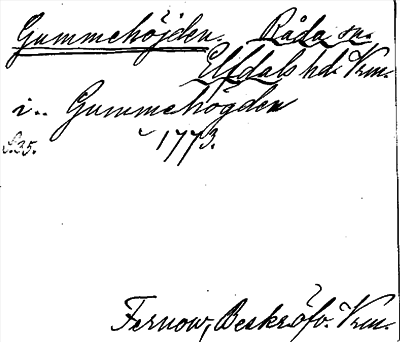 Gummehöjden. Råda sn.
Elfdals hd. Vrm.
i.. Gummehögden
S.35. 1773.
Fernow, Beskrifv. Vrm.